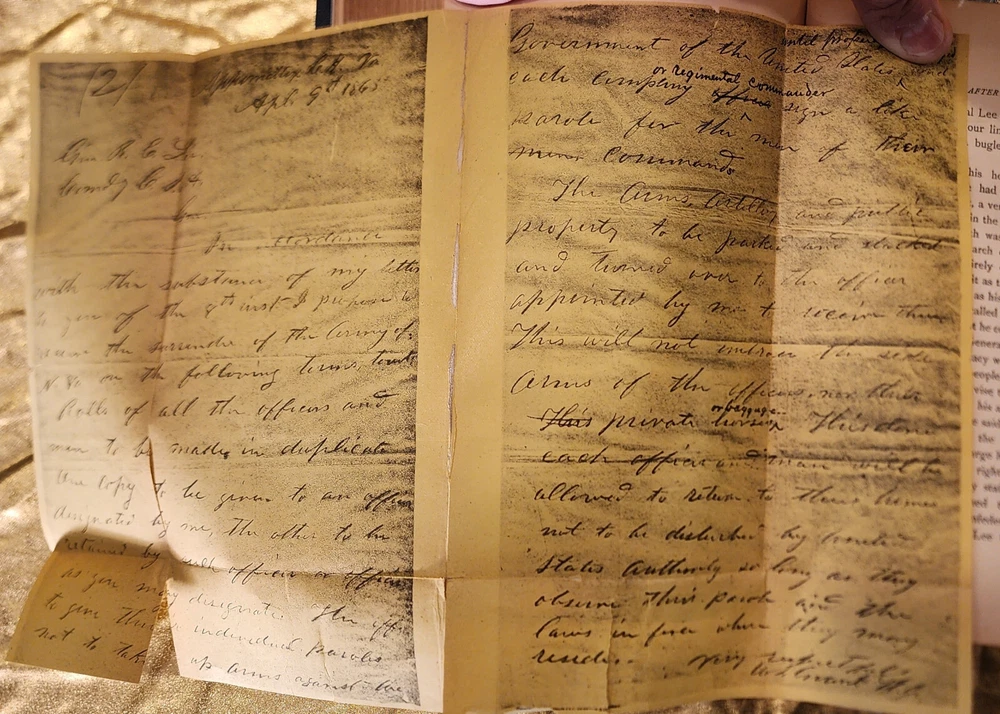 [2]
Appomattox C. H. Va
Apl. 9th 1865
Gen R. E. Lee
Comdg C.S.A.
Gen
In accordance
with the substance of my letter
to you of the 8th inst I propose to
receive the surrender of the Army of
N. Va. on the following terms, towit
Rolls of all the officers and
men to be made in duplicate
One copy to be given to an officer
designated by me, the other to be
retained by such officer or officers
as you may designate. The off
to give their individual paroles
not to take up arms against the
Government of the United States until properly
and
or regimental commander
each company officer sign a like
parole for the men of their
commands
The Arms, Artillery and public
property to be parked and stacked
and turned over to the officer
appointed by me to receive them
This will not embrace the side
Arms of the officers, nor their
or baggage.
This private horses This done
each officer and man will be
allowed to return to their homes
not to be disturbed by United
States Authority so long as they
observe their parole and the
laws in force where they may
reside.
Very respectfully